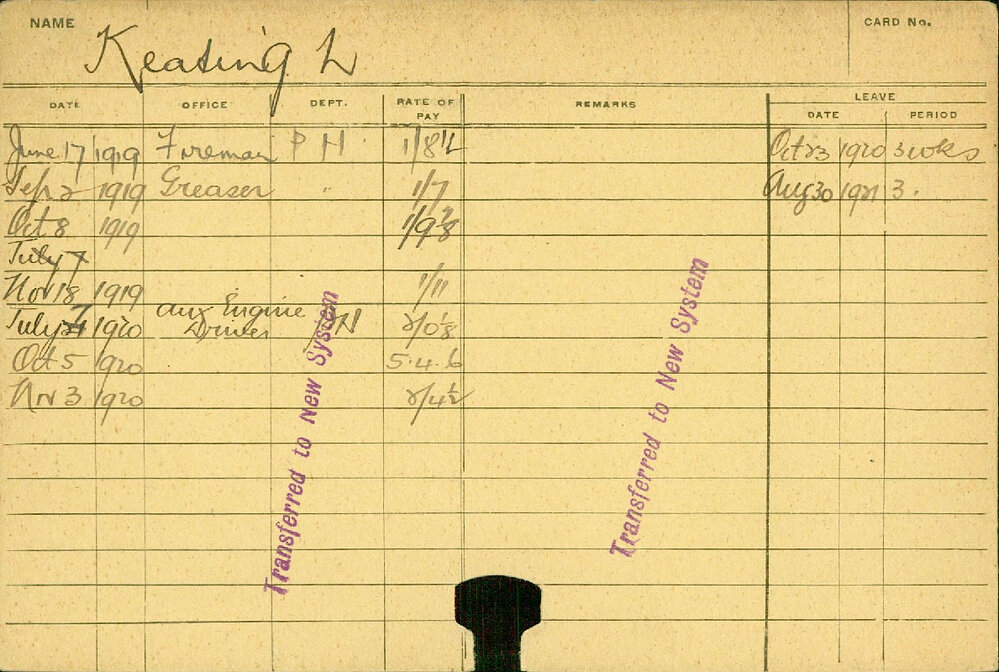 NAME Keating L CARD No.
DATE OFFICE DEPT. RATE OF PAY REMARKS LEAVE
DATE PERIOD
June 17 1919 Fireman P H 1/8½ Oct 23 1920 3 wks
Sep 2 1919 Greaser " 1/7 Aug 30 1921 3.
Oct 8 1919 1/9⅞
July 7
Nov 18 1919 1/11
July 1920 Aux Engine Driver 2/0·8
Oct 5 1920 5.4.6
Nov 3 1920 2/4½
Transferred to New System
Transferred to New System